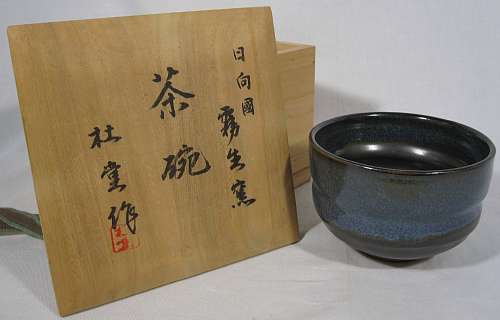 日向國
霧生窯
茶碗
社堂作